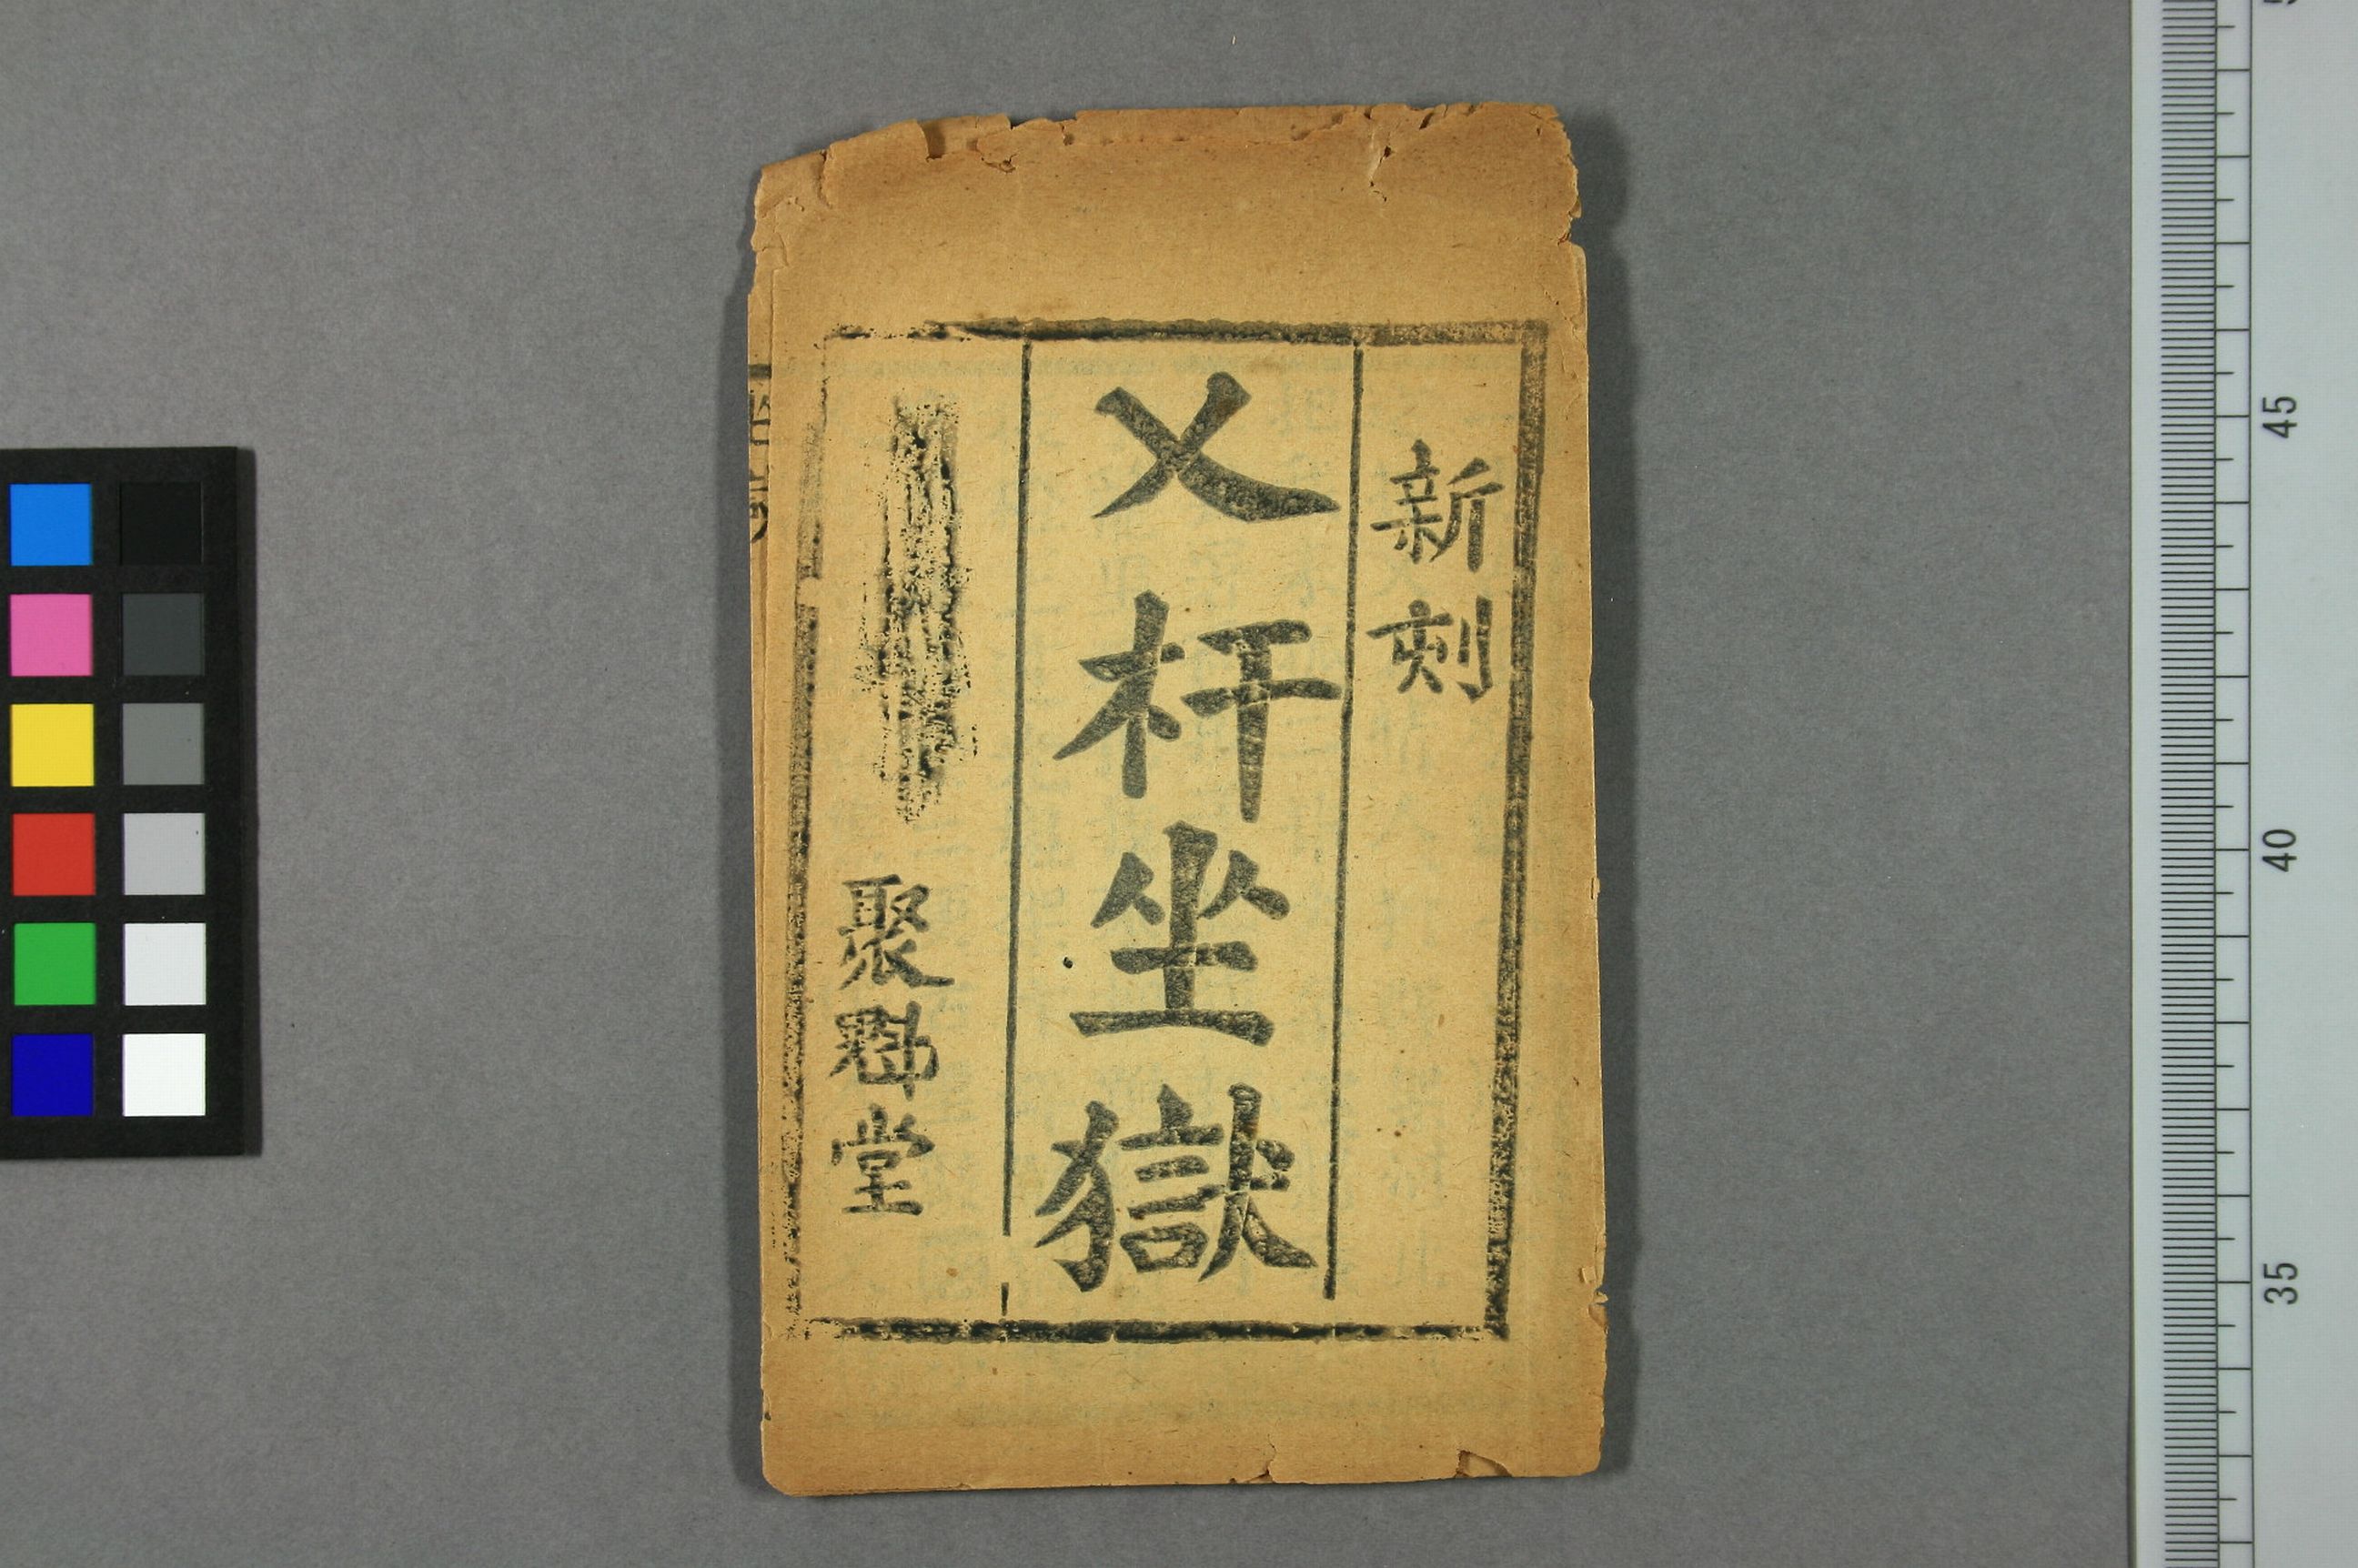 新刻
乂杆坐獄
聚魁堂
45
40
35